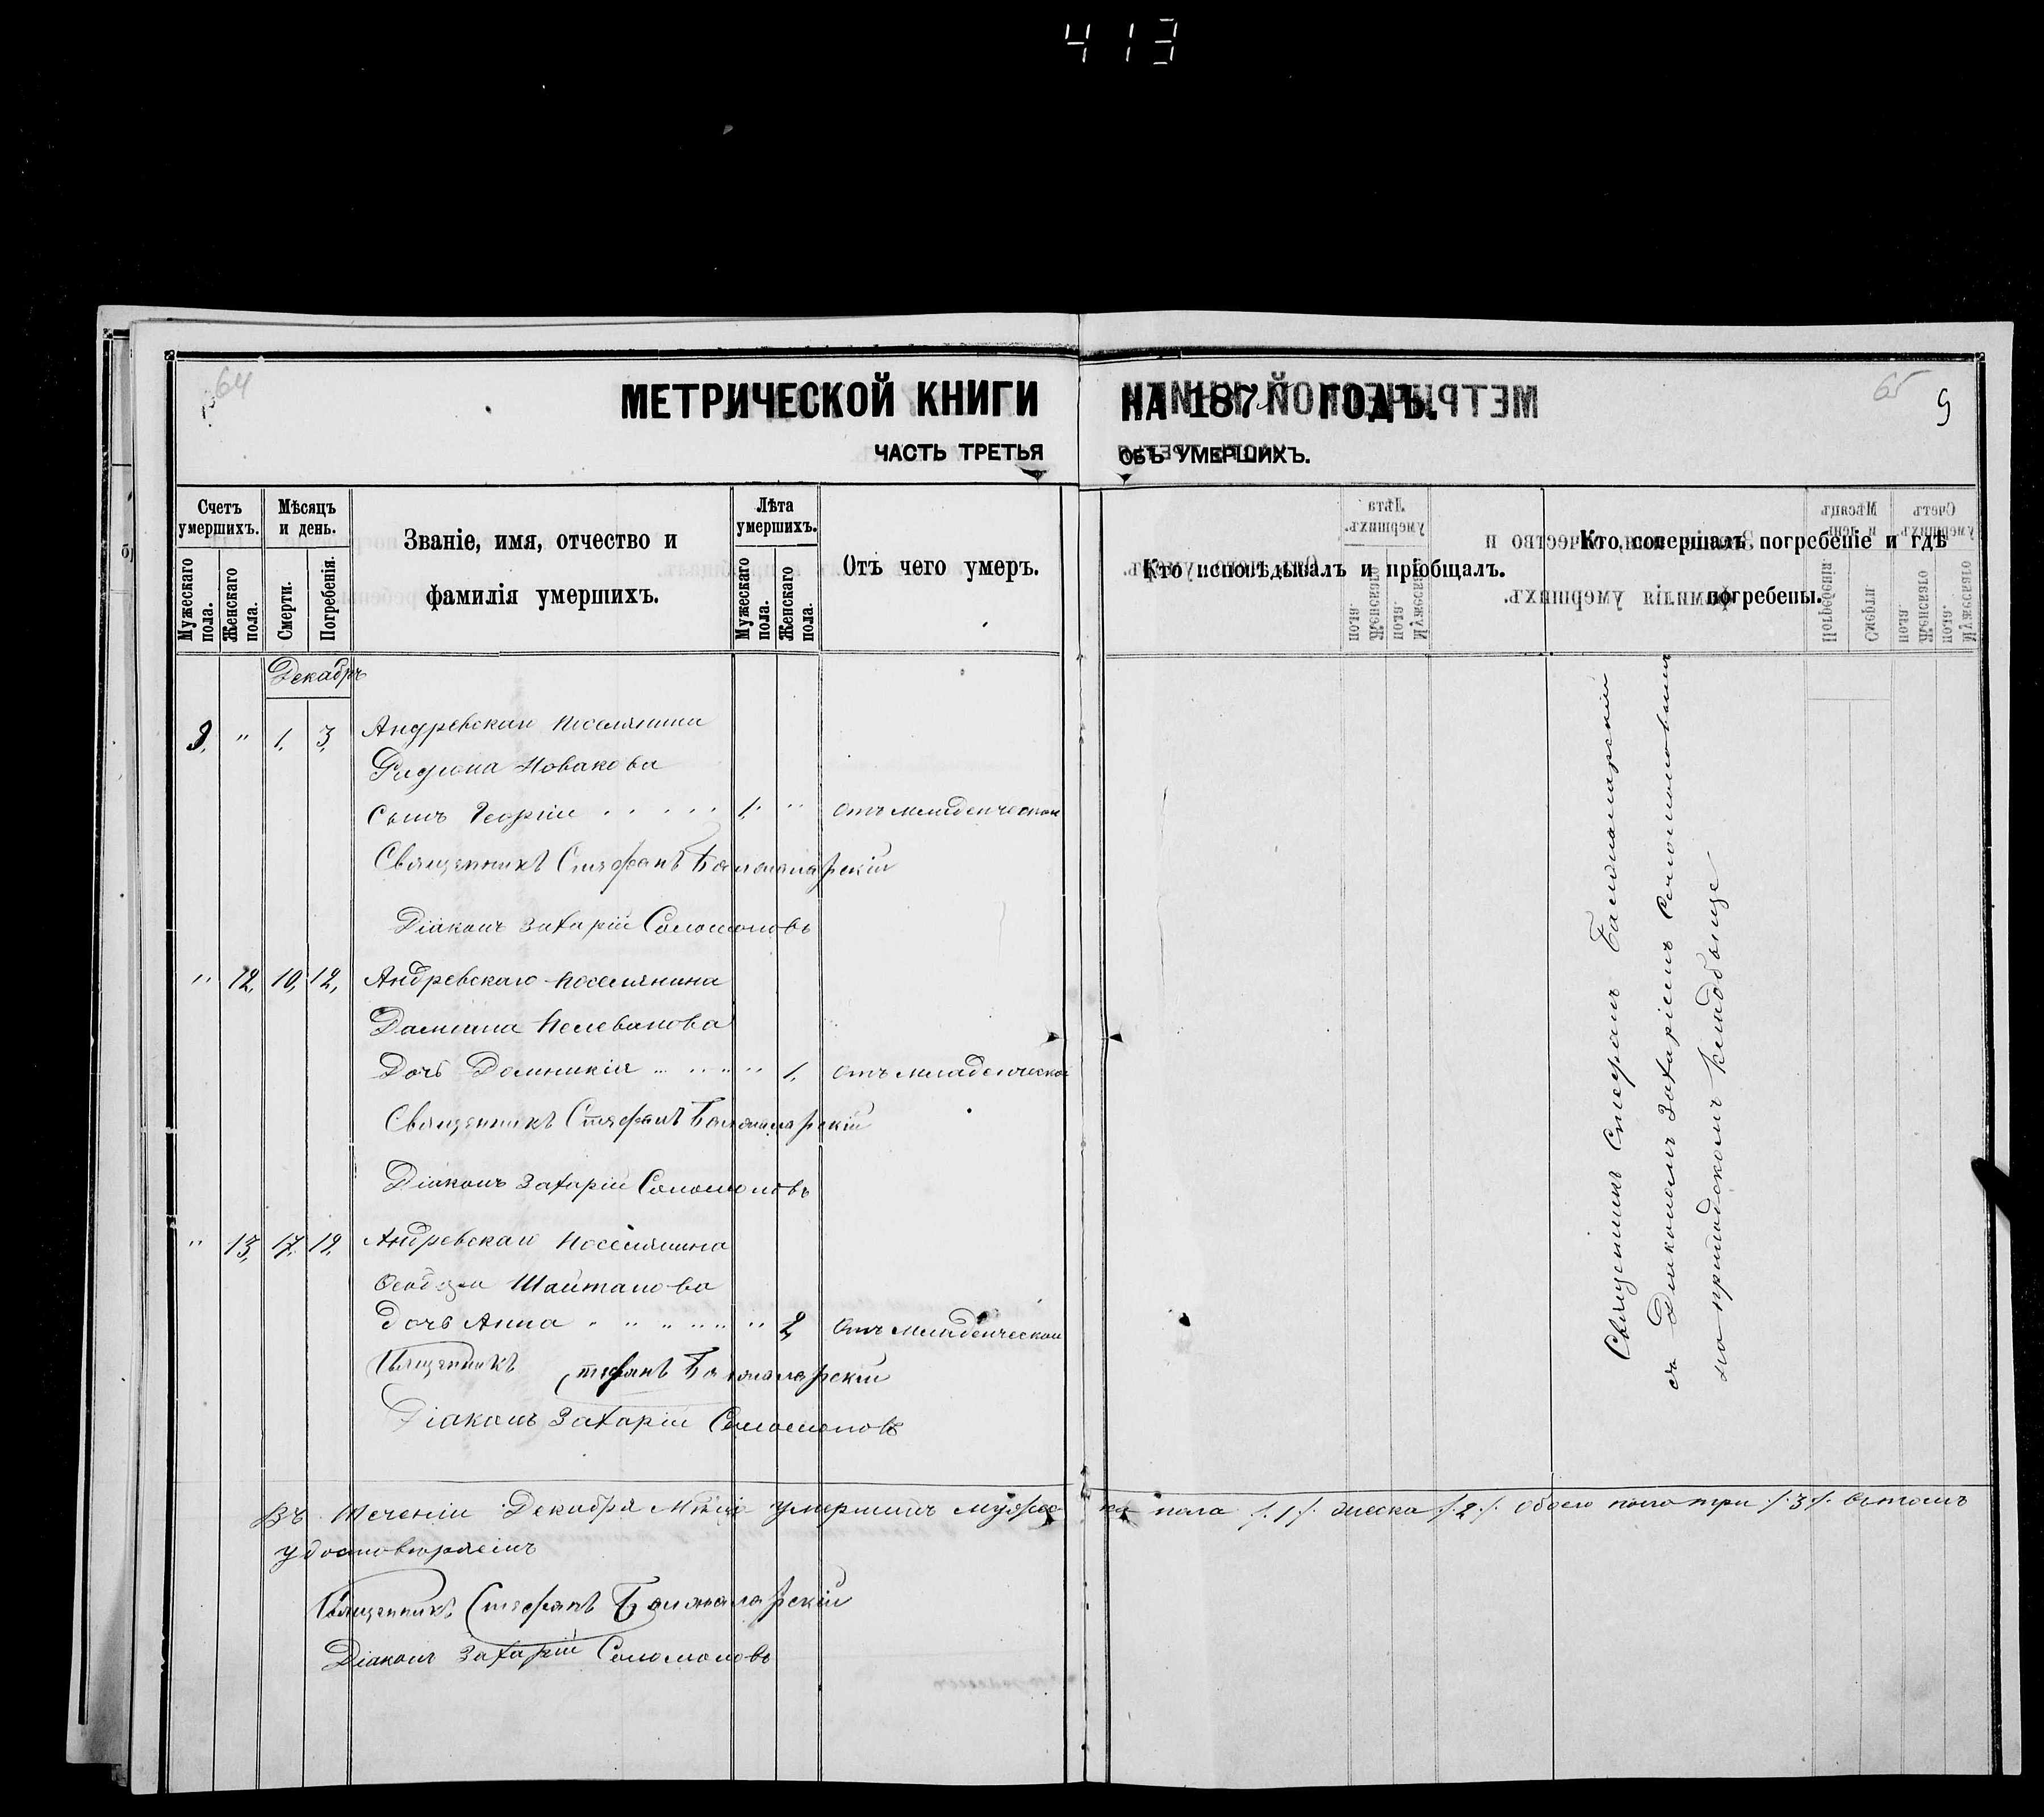 413
64
МЕТРИЧЕСКОЙ КНИГИ
НА 187 ГОДЪ.
65
9
ЧАСТЬ ТРЕТЬЯ
ОБЪ УМЕРШИХЪ.
Счетъ умершихъ.
Мужескаго пола.
Женскаго пола.
Мѣсяцъ и день.
Смерти.
Погребенія.
Званіе, имя, отчество и
фамилія умершихъ.
Лѣта умершихъ.
Мужескаго пола.
Женскаго пола.
Отъ чего умеръ.
Кто исповѣдывалъ и пріобщалъ.
Кто совершалъ погребеніе и гдѣ
погребены.
Декабрь
9. " 1. 3. Андревскаго поселянина
Новакова
Сынъ Георгій 1. " Отъ младенческой
Священникъ Стефанъ
Діаконъ Захарій Соломоновъ
" 12. 10, 12, Андревскаго поселянина
Дочь Домникія " 1. Отъ младенческой
Священникъ Стефанъ
Діаконъ Захарій Соломоновъ
" 13, 17. 19. Андревскаго поселянина
Шайтанова
дочь Анна " 2, Отъ младенческой
Священникъ Стефанъ
Діаконъ Захарій Соломоновъ
Священникъ Стефанъ
съ Діакономъ Захаріемъ Соломоновымъ
на приходскомъ кладбище
Въ теченіи Декабря умершихъ мужес-ка пола /.1/. женска /.2/. обоего пола три /.3/.
удостовѣряемъ
Священникъ Стефанъ
Діаконъ Захарій Соломоновъ